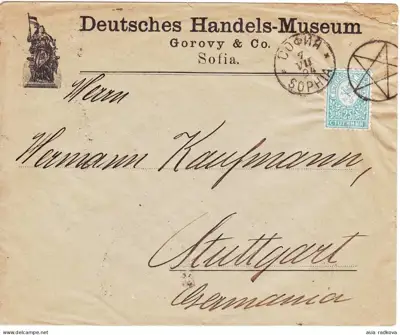 Deutsches Handels-Museum
Gorovy & Co.
Sofia.
СОФИЯ
VII
SOPHIA
25
Herrn
Hermann Kaufmann,
Stuttgart
Germania
avia radkova